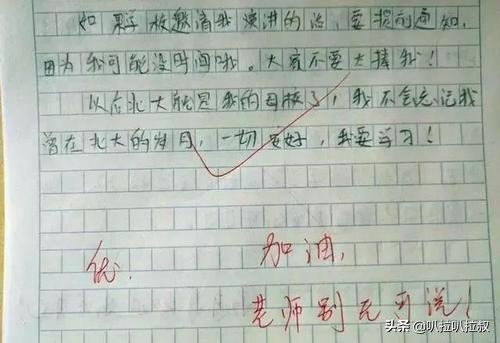 如果学校邀请我演讲的话,要提前通知,
因为我可能没时间哦。大家不要太捧我!
以后北大就是我的母校了,我不会忘记我
曾在北大的岁月,一切安好,我要学习!
优
加油,
老师别无可说!
头条 @叭拉叭拉叔